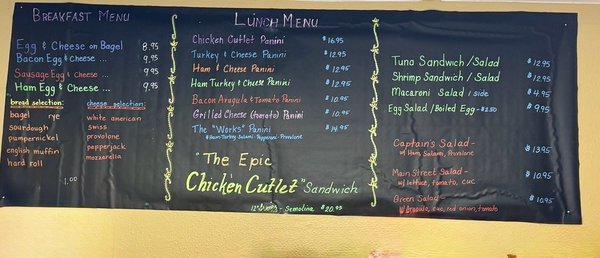 BREAKFAST MENU
Egg & Cheese on Bagel 8.95
Bacon Egg & Cheese ... 9.95
Sausage Egg & Cheese ... 9.95
Ham Egg & Cheese ... 9.95
bread selection:
bagel rye
sourdough
pumpernickel
english muffin
hard roll
cheese selection:
white american
swiss
provolone
pepperjack
mozzarella
1.00
LUNCH MENU
Chicken Cutlet Panini $16.95
Turkey & Cheese Panini $12.95
Ham & Cheese Panini $12.95
Ham Turkey & Cheese Panini $12.95
Bacon Arugula & Tomato Panini $10.95
Grilled Cheese (tomato) Panini $10.95
The "Works" Panini $14.95
Ham-Turkey-Salami-Pepperoni-Provolone
"The Epic
Chicken Cutlet" Sandwich
Semolina $20.95
Tuna Sandwich/Salad $12.95
Shrimp Sandwich/Salad $12.95
Macaroni Salad/side $4.95
Egg Salad/Boiled Egg-$2.50 $9.95
Captain's Salad- $13.95
w/ Ham, Salami, Provolone
Main Street Salad- $10.95
w/ lettuce, tomato, cuc
Green Salad- $10.95
w/ arugula, cuc, red onion, tomato